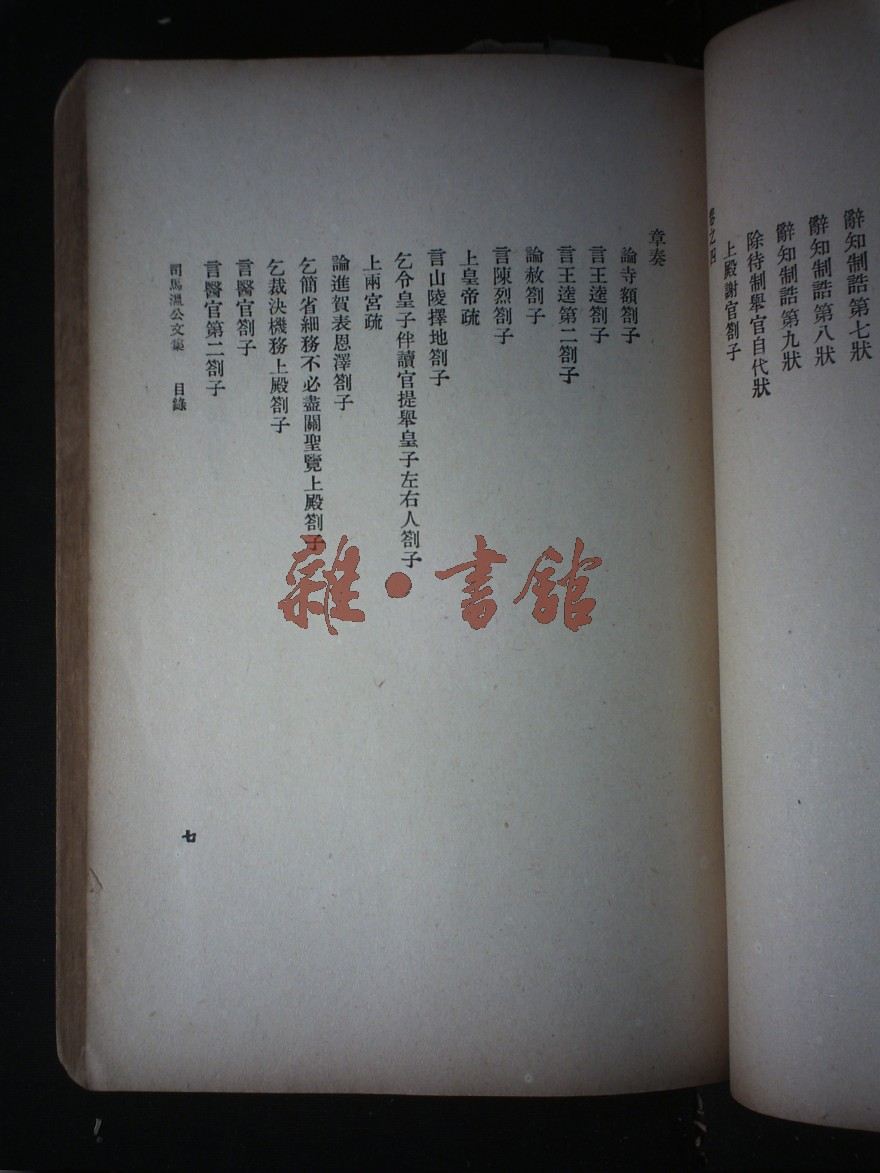 辭知制誥第七狀
辭知制誥第八狀
辭知制誥第九狀
除待制舉官自代狀
上殿謝官劄子
卷之四
章奏
論寺額劄子
言王逵劄子
言王逵第二劄子
論赦劄子
言陳烈劄子
上皇帝疏
言山陵擇地劄子
乞令皇子伴讀官提舉皇子左右人劄子
上兩宮疏
論進賀表恩澤劄子
乞簡省細務不必盡關聖覽上殿劄子
乞裁決機務上殿劄子
言醫官劄子
言醫官第二劄子
司馬溫公文集 目錄
七
雜·書館